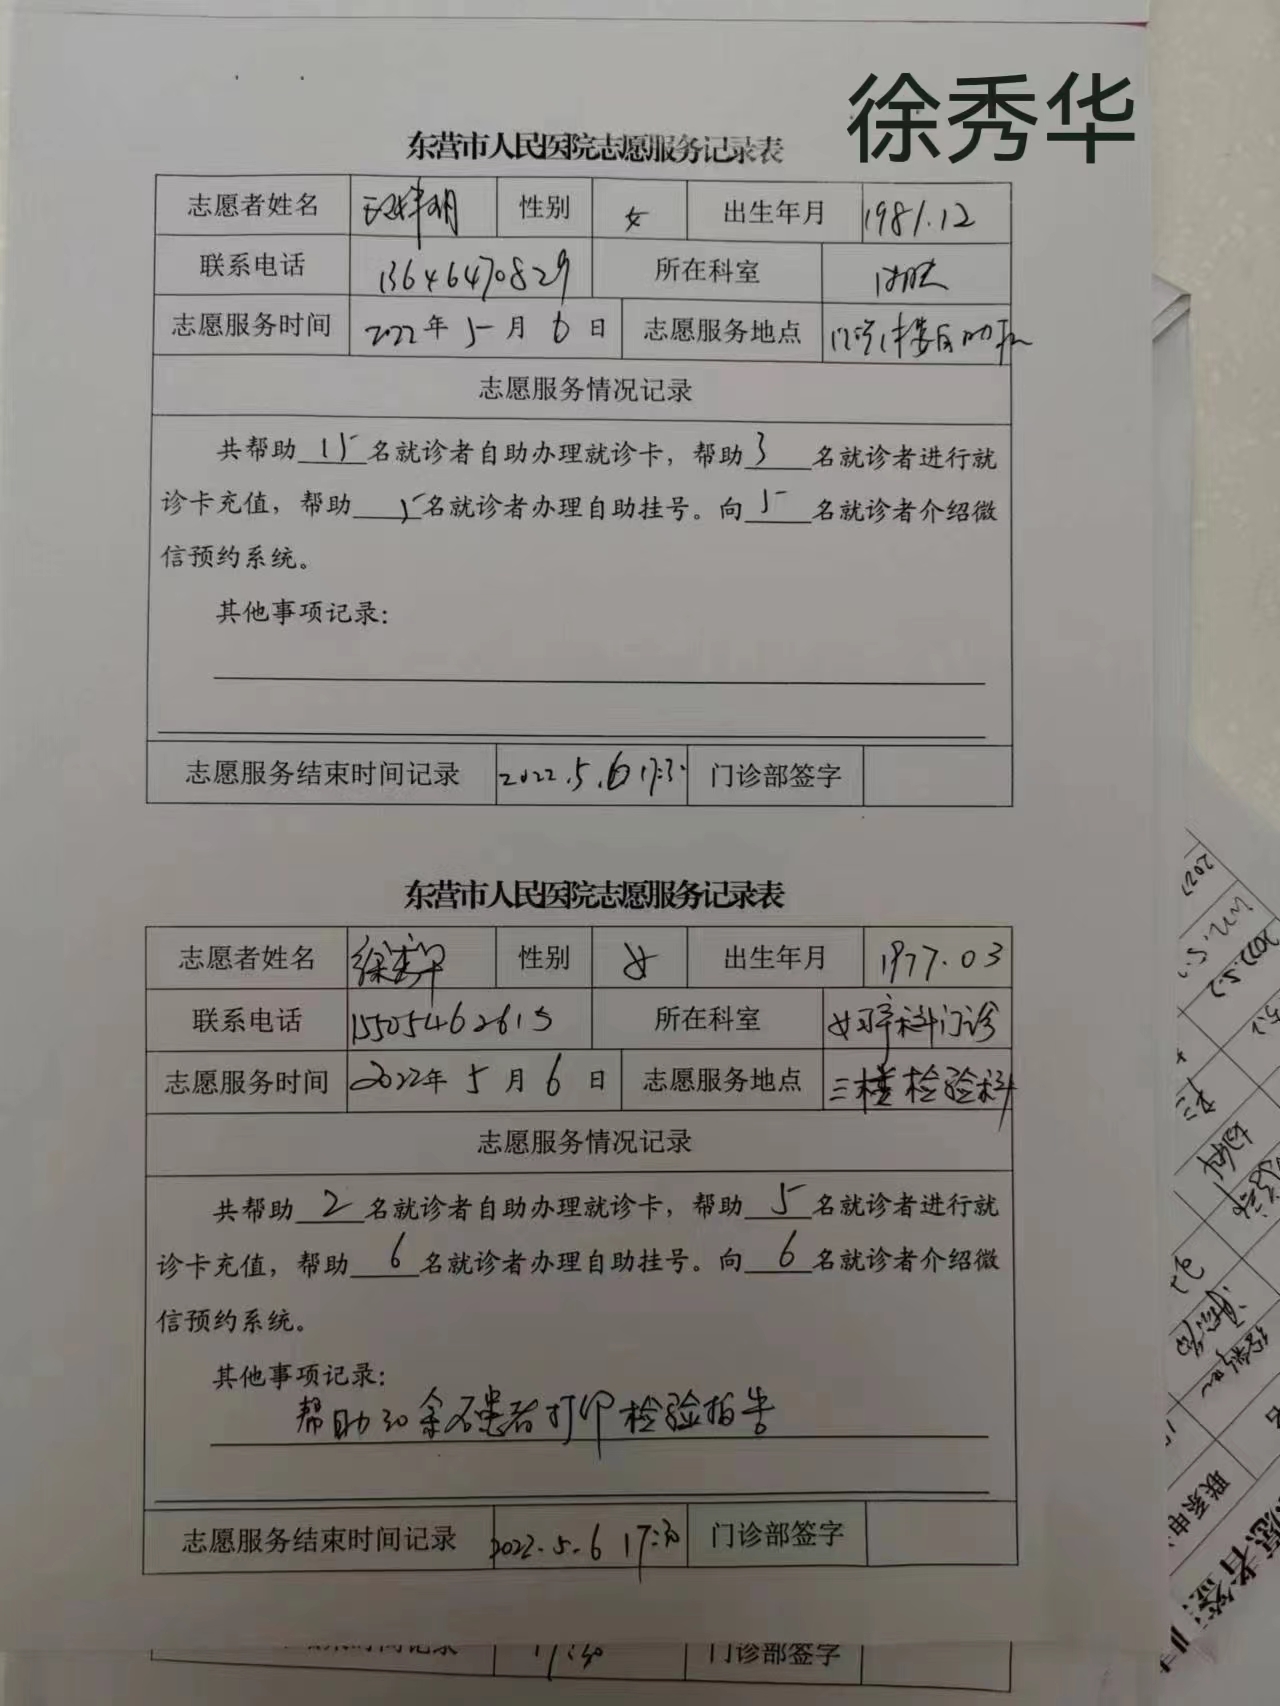 徐秀华
东营市人民医院志愿服务记录表
志愿者姓名 性别 女 出生年月 1981.12
联系电话 13646470829 所在科室
志愿服务时间 2022年 5 月 6 日 志愿服务地点
志愿服务情况记录
共帮助 15 名就诊者自助办理就诊卡，帮助 3 名就诊者进行就
诊卡充值，帮助 5 名就诊者办理自助挂号。向 5 名就诊者介绍微
信预约系统。
其他事项记录：
志愿服务结束时间记录 2022.5.6 17:30 门诊部签字
东营市人民医院志愿服务记录表
志愿者姓名 徐秀华 性别 女 出生年月 1977.03
联系电话 15505462615 所在科室 妇产科门诊
志愿服务时间 2022年 5 月 6 日 志愿服务地点 三楼检验科
志愿服务情况记录
共帮助 2 名就诊者自助办理就诊卡，帮助 5 名就诊者进行就
诊卡充值，帮助 6 名就诊者办理自助挂号。向 6 名就诊者介绍微
信预约系统。
其他事项记录：
帮助30余名患者打印检验报告
志愿服务结束时间记录 2022.5.6 17:30 门诊部签字
17:30 门诊部签字